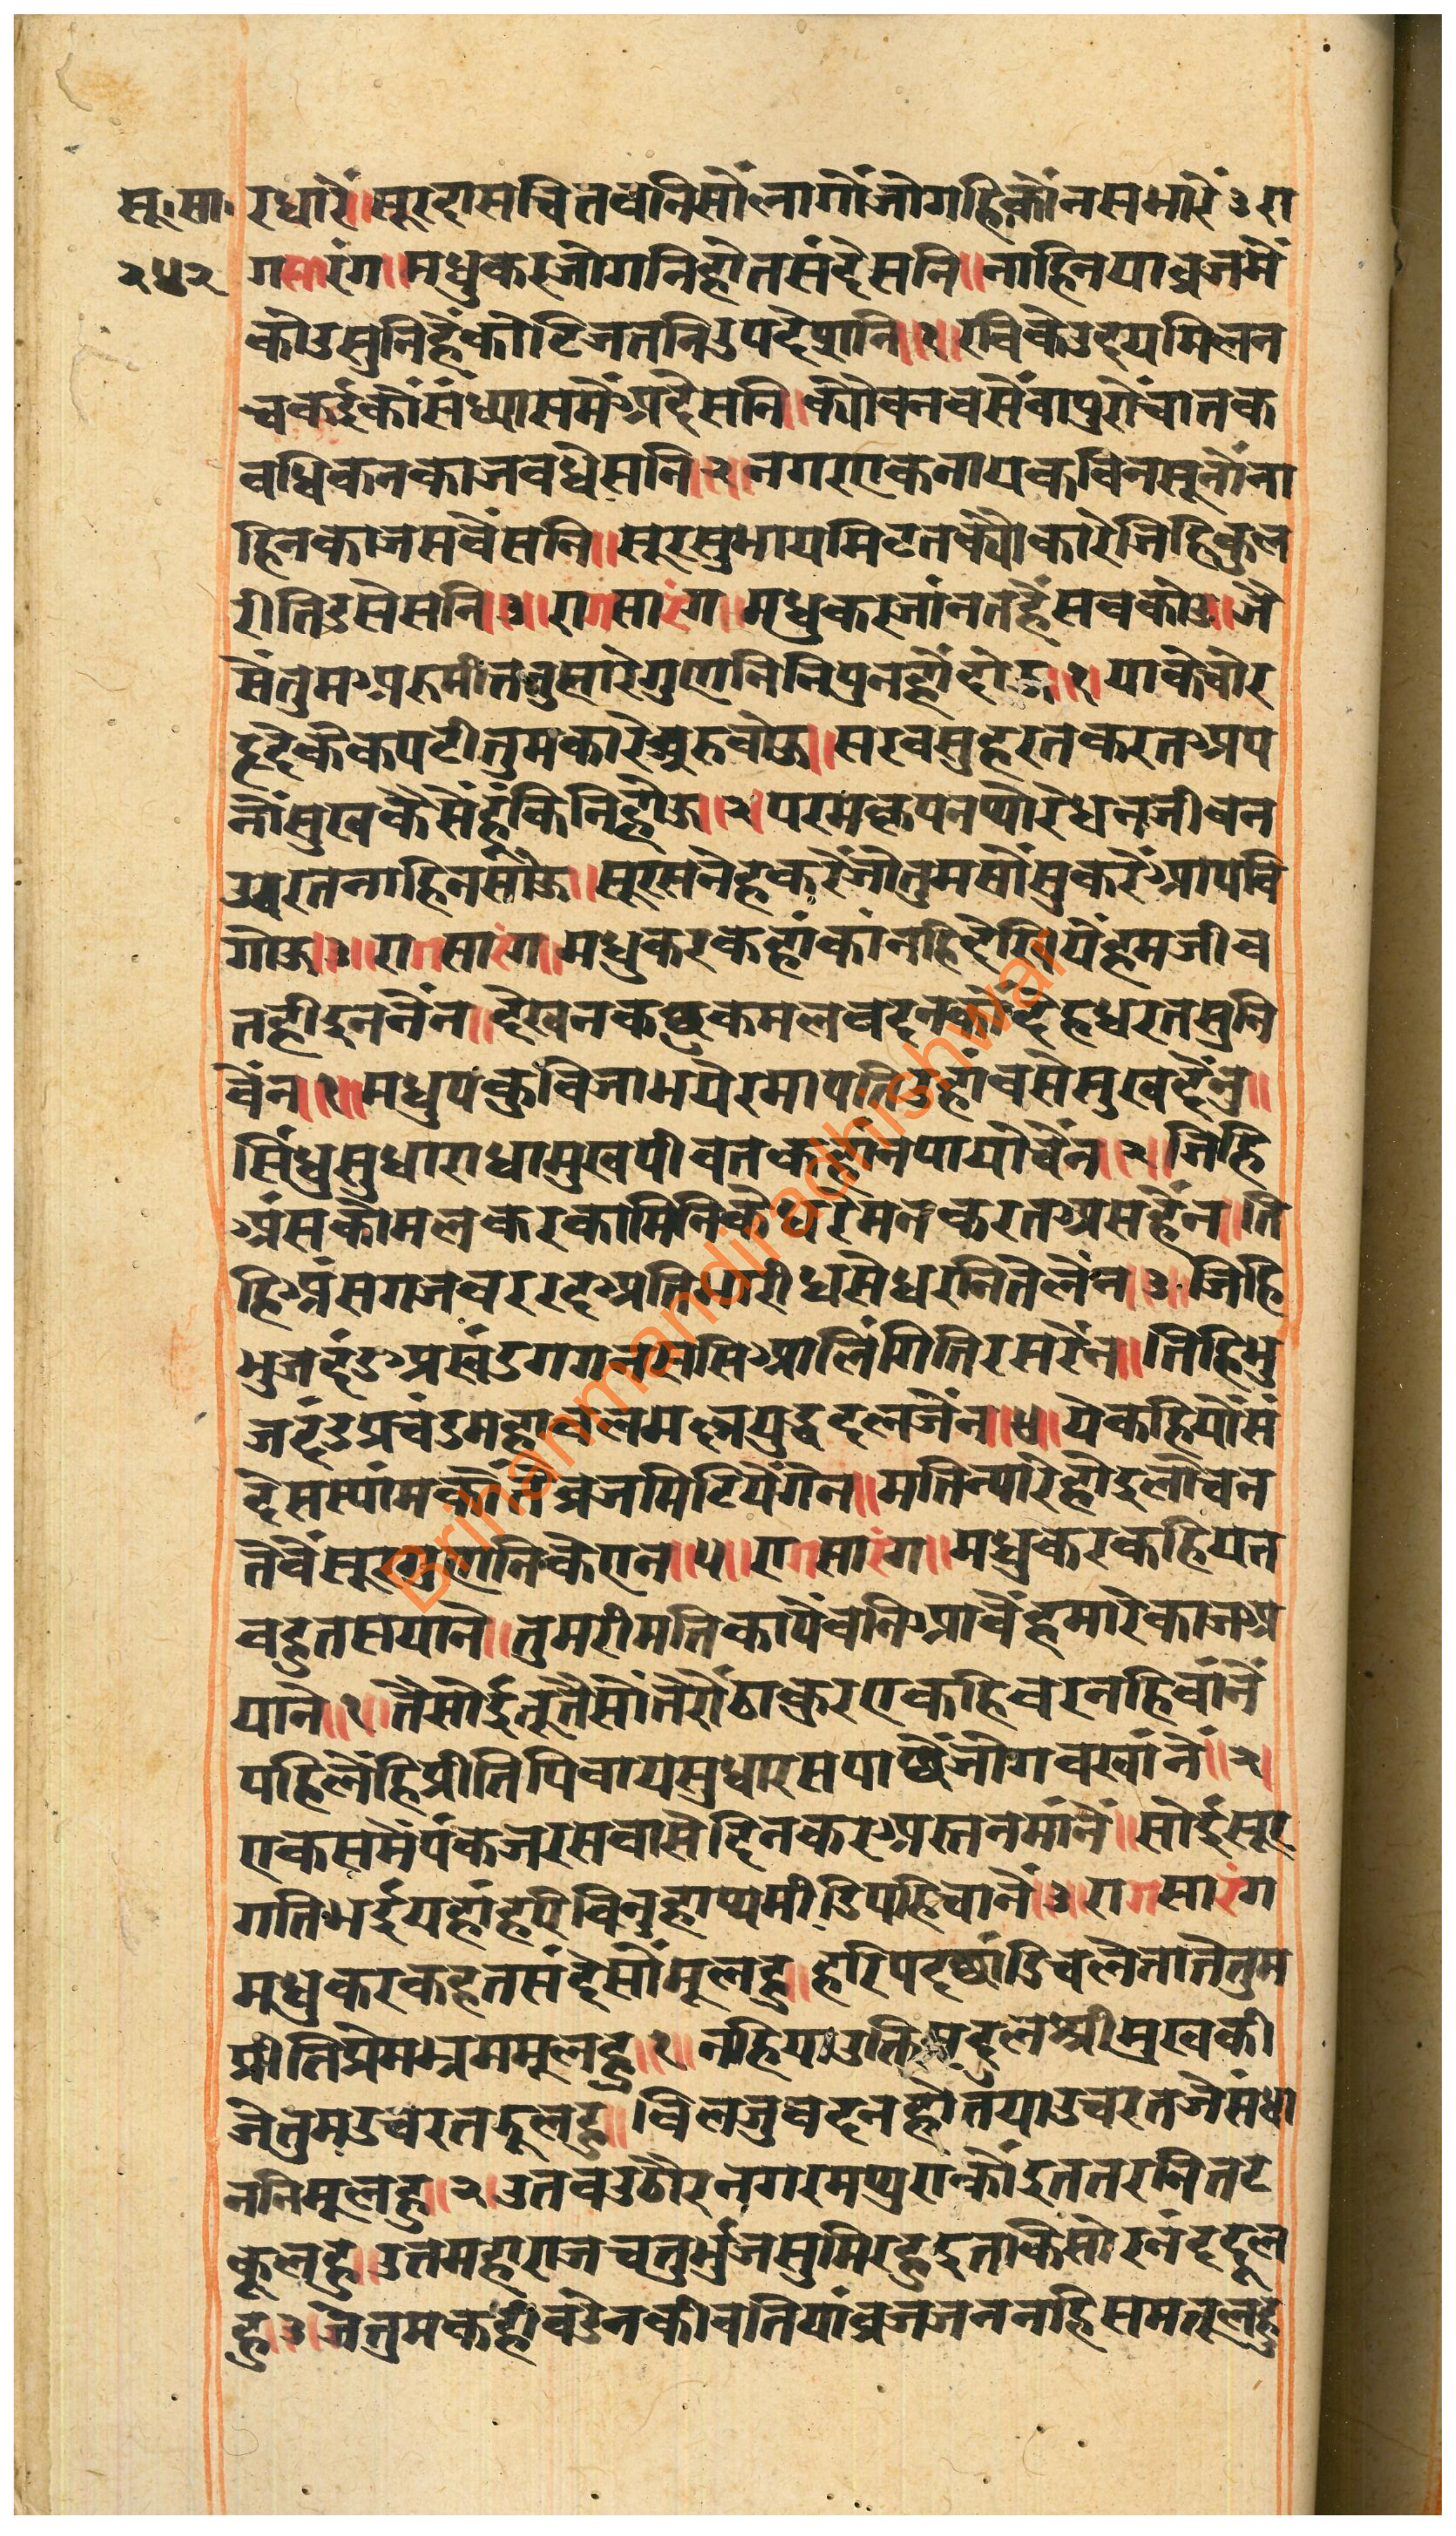 सू।सा।
२५२
रधारै॥सूरदासचितवनिसौंलागौंजोगहिकौंनसभारैं३रा
गसारंग॥मधुकरजोगनिहोतसंदेसनि॥नाहिनयाब्रजमैं
कोउसुनिहैंकोटिजतनिउपदेसनि॥१॥रविकेउदयमिलन
चकईकौंसंध्यासमैंअदेसनि॥क्यौंवनवसैंवापुरोचातक
वधिकनकाजवधेसनि॥२॥नगरएकनायकविनसूनौंना
हिनकाजसवैंसनि॥सूरसुभायमिटतक्यौकारेजिहिकुल
रीतिडसेसनि॥३॥रागसारंग॥मधुकरजांनतहैंसवकोउ॥जै
सैंतुमअरुमीततुसारेगुणनिनिपुनहौंदोऊ॥१॥याकेचोर
हृदैकेकपटीतुमकारेअरुवोऊ॥सरवसुहरतकरतअप
नौंसुखकैसैंहूंकिनिहौऊ॥२॥परमकृपनप्यारेधनजीवन
उवरतनाहिनसौऊ॥सूरसनेहकरैंजौतुमसौंसुकरैंआपवि
गोऊ॥३॥रागसारंग॥मधुकरकहांकांनहिदेगि॥येंहमजीव
तहीदुननैंन॥देखनकछुकमलवदनकौंदेहधरतसुनि
वैंन॥१॥मधुपकुविजाभयेरमापतिउहांवसेसुखदैंनु॥
सिंधुसुधाराधामुखपीवतकहांनपायोचैंन॥२॥जिहि
अंसकोमलकरकामिनिकेधरेमनकरतअसहैंन॥ति
हिअंसगजवररदअतिभारीधसेधरनितेलैंन॥३॥जिहि
भुजदंडअखंडगगनससिआलिंगितिरसरैंन॥तिहिभु
जदंडप्रचंडमहावलमल्लयुद्धदलजैंन॥४॥येकहियौंसं
देसस्यांमकौंतैंब्रजमिटियेंगैन॥मतिन्यारेहौदुलोचन
तैवैंसूरगुणनिकेएन॥५॥रागसारंग॥मधुकरकहियत
वहुतसयाने॥तुमरीमतिकापैंवनिआवैंहमारेकाजअ
याने॥१॥तैसोईतूतैसौंतेरौठाकुरएकहिवरनहिवांनैं
पहिलैंहिप्रीतिपिवायसुधारसपाछैंजोगवखांनै॥२॥
एकसमैंपंकजरसवासेदिनकरअस्तनमांनैं॥सोईसूर
गतिभईयहांहरिविनुहाथमीडिपछिताने॥३॥रागसारंग
मधुकरकहतसंदेसौंमूलहु॥हरिपदछांडिचलेतातेतुम
प्रीतिप्रेमभ्रममूलहु॥१॥नहियाउक्तिमृदुलश्रीमुखकी
जेतुमउचरतदूलहु॥विलजुवदनहोतयाउचरतजैसंधा
ननिमूलहु॥२॥उतवउठौरनगरमथुराह्यांइततरनितट
कूलहु॥उतमहाराजचतुर्भुजसुमिरहुइतकिसोरनंददूल
हु॥३॥जेतुमकहीवडेनकीवतियांब्रजजननहिसमतूलहु